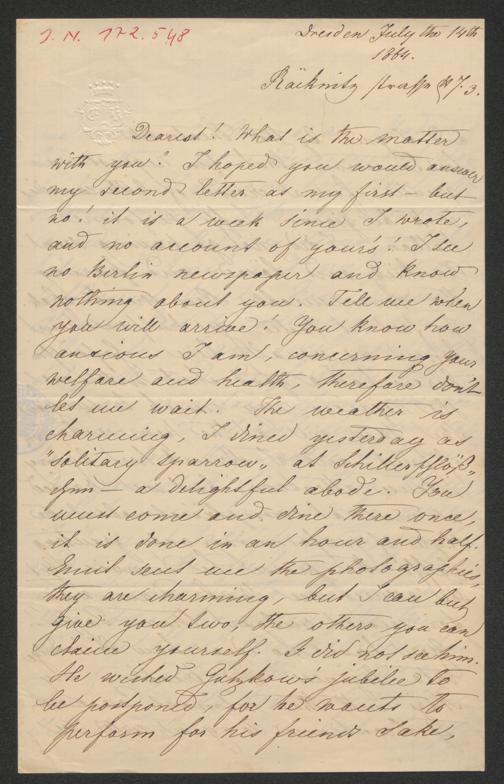 J. N. 172.548
Dresden July the 14th
1864.
Räcknitz strasse № 7. 3.
Dearest! What is the matter
with you? I hoped you would answer
my second letter as my first – but
no! it is a week since I wrote,
and no account of yours! I see
no Berlin newspaper and know
nothing about you. Tell me when
you will arrive! You know how
anxious I am, concerning your
welfare and health, therefore don't
let me wait. The weather is
charming, I dined yesterday as
"solitary sparrow" at Schillerschlöß„
chen – a delightful abode. You
must come and dine there once,
it is done in an hour and half.
Emil sent me the photographies,
they are charming, but I can but
give you two, the others you can
claim yourself. I did not see him.
He wished Gutzkow's jubilee to
be postponed, for he wants to
perform for his friends sake,